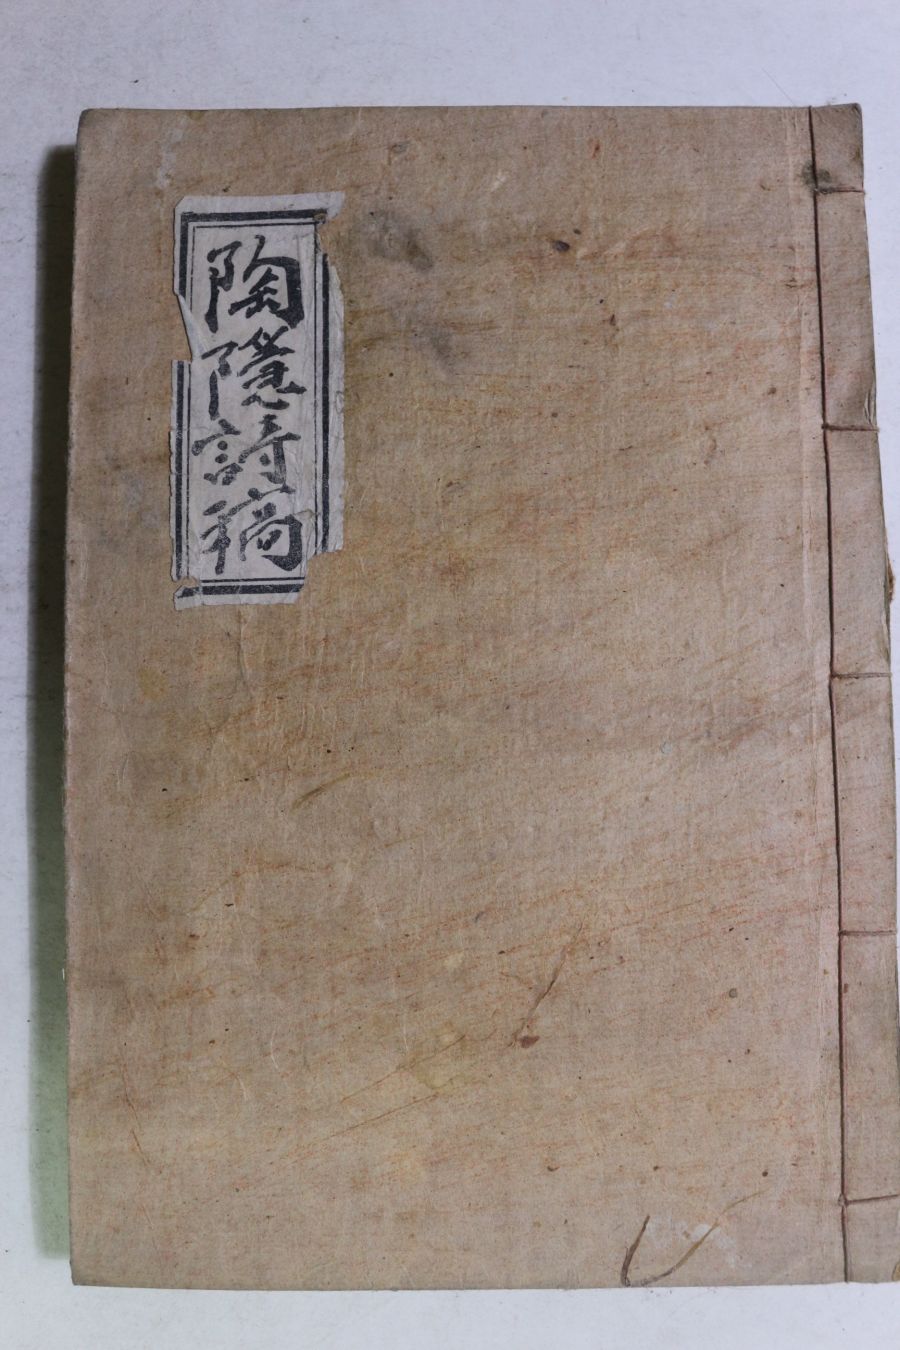 陶隱詩稿